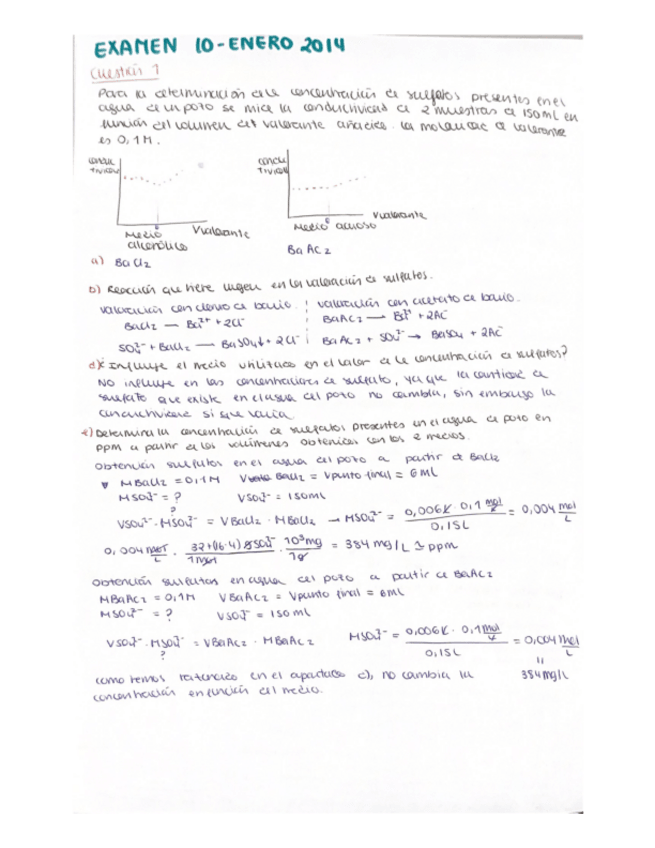 EXAMEN 10-ENERO 2014
Cuestión 1
Para la determinación de la concentración de sulfatos presentes en el
agua de un pozo se mide la conductividad de 2 muestras de 150mL en
función del volumen del valorante añadido. La molaridad de valorante
es 0,1M.
conduc
tividad
Vvalorante
Medio
alcohólico
conduc
tividad
Vvalorante
Medio acuoso
a) BaCl2
BaAc2
b) Reacción que tiene lugar en las valoración de sulfatos.
valoración con cloruro de bario. valoración con acetato de bario.
BaCl2 → Ba2+ + 2Cl- BaAc2 → Ba2+ + 2Ac-
SO42- + BaCl2 → BaSO4↓ + 2Cl- BaAc2 + SO42- → BaSO4 + 2Ac-
d) ¿Influye el medio utilizado en el valor de la concentración de sulfatos?
No influye en las concentraciones de sulfato, ya que la cantidad de
sulfato que existe en el agua del pozo no cambia, sin embargo la
conductividad si que varia.
e) Determina la concentración de sulfatos presentes en el agua de pozo en
ppm a partir de los volúmenes obtenidos con los 2 medios.
Obtención sulfatos en el agua del pozo a partir de BaCl2
MBaCl2 = 0,1M VBaCl2 = Vpunto final = 6mL
MSO42- = ? VSO42- = 150mL
?
VSO42- · MSO42- = VBaCl2 · MBaCl2 → MSO42- = 0,006L · 0,1 mol/L / 0,15L = 0,004 mol/L
0,004 mol/L · 32+(16·4) g SO42- / 1 mol · 10³mg / 1g = 384 mg/L ppm
Obtención sulfatos en agua del pozo a partir de BaAc2
MBaAc2 = 0,1M VBaAc2 = Vpunto final = 6mL
MSO42- = ? VSO42- = 150 mL
VSO42- · MSO42- = VBaAc2 · MBaAc2 MSO42- = 0,006L · 0,1 mol/L / 0,15L = 0,004 mol/L
?
=
384mg/L
como hemos en el apartado c), no cambia la
concentración en función del medio.